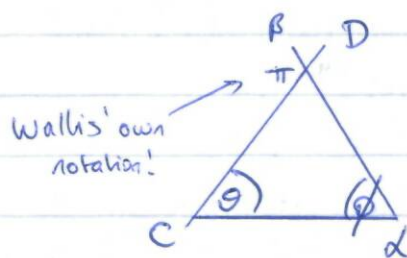 β D
π
Wallis' own
notation!
ϑ φ
C α